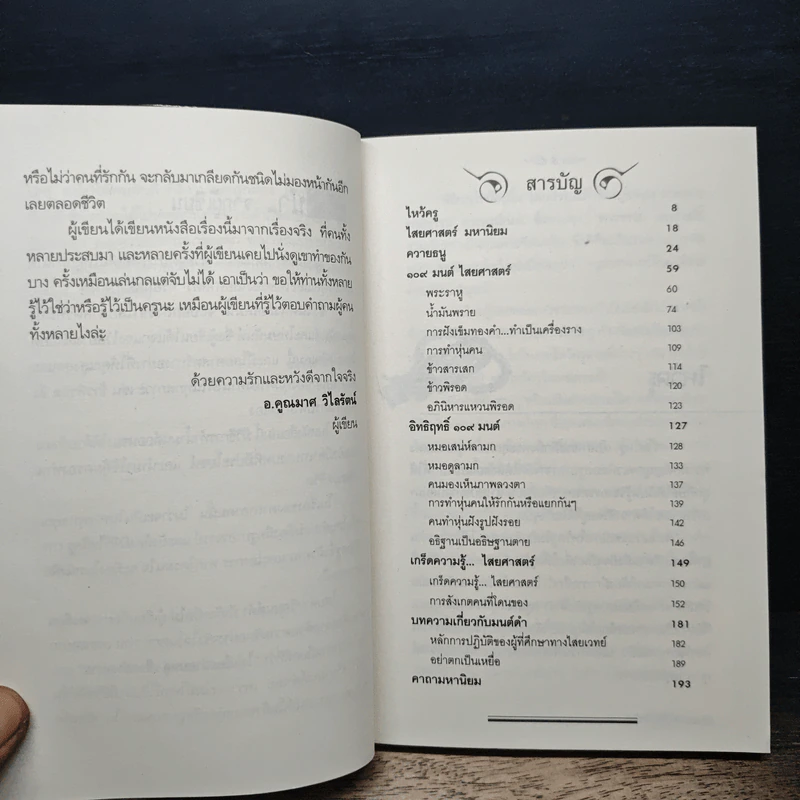 หรือไม่ว่าคนที่รักกัน จะกลับมาเกลียดกันชนิดไม่มองหน้ากันอีก
เลยตลอดชีวิต
ผู้เขียนได้เขียนหนังสือเรื่องนี้มาจากเรื่องจริง ที่คนทั้ง
หลายประสบมา และหลายครั้งที่ผู้เขียนเคยไปนั่งดูเขาทำของกัน
บาง ครั้งเหมือนเล่นกลแต่จับไม่ได้ เอาเป็นว่า ขอให้ท่านทั้งหลาย
รู้ไว้ใช่ว่าหรือรู้ไว้เป็นครูนะ เหมือนผู้เขียนที่รู้ไว้ตอบคำถามผู้คน
ทั้งหลายไงล่ะ
ด้วยความรักและหวังดีจากใจจริง
อ.คูณมาศ วิไลรัตน์
ผู้เขียน
สารบัญ
ไหว้ครู 8
ไสยศาสตร์ มหานิยม 18
ควายธนู 24
๑๐๙ มนต์ ไสยศาสตร์ 59
พระราหู 60
น้ำมันพราย 74
การฝังเข็มทองคำ...ทำเป็นเครื่องราง 103
การทำหุ่นคน 109
ข้าวสารเสก 114
ข้าวพิรอด 120
อภินิหารแหวนพิรอด 123
อิทธิฤทธิ์ ๑๐๙ มนต์ 127
หมอเสน่ห์ลามก 128
หมอดูลามก 133
คนมองเห็นภาพลวงตา 137
การทำหุ่นคนให้รักกันหรือแยกกันๆ 139
คนทำหุ่นฝังรูปฝังรอย 142
อธิฐานเป็นอธิษฐานตาย 146
เกร็ดความรู้... ไสยศาสตร์ 149
เกร็ดความรู้... ไสยศาสตร์ 150
การสังเกตคนที่โดนของ 152
บทความเกี่ยวกับมนต์ดำ 181
หลักการปฏิบัติของผู้ที่ศึกษาทางไสยเวทย์ 182
อย่าตกเป็นเหยื่อ 189
คาถามหานิยม 193